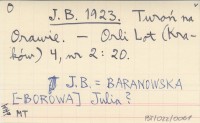 J.B. 1923. Turoń na
Orawie. — Orli Lot (Kra-
ków) 4, nr 2: 20.
J.B. = BARANOWSKA
[-BOROWA] Julia?
MT